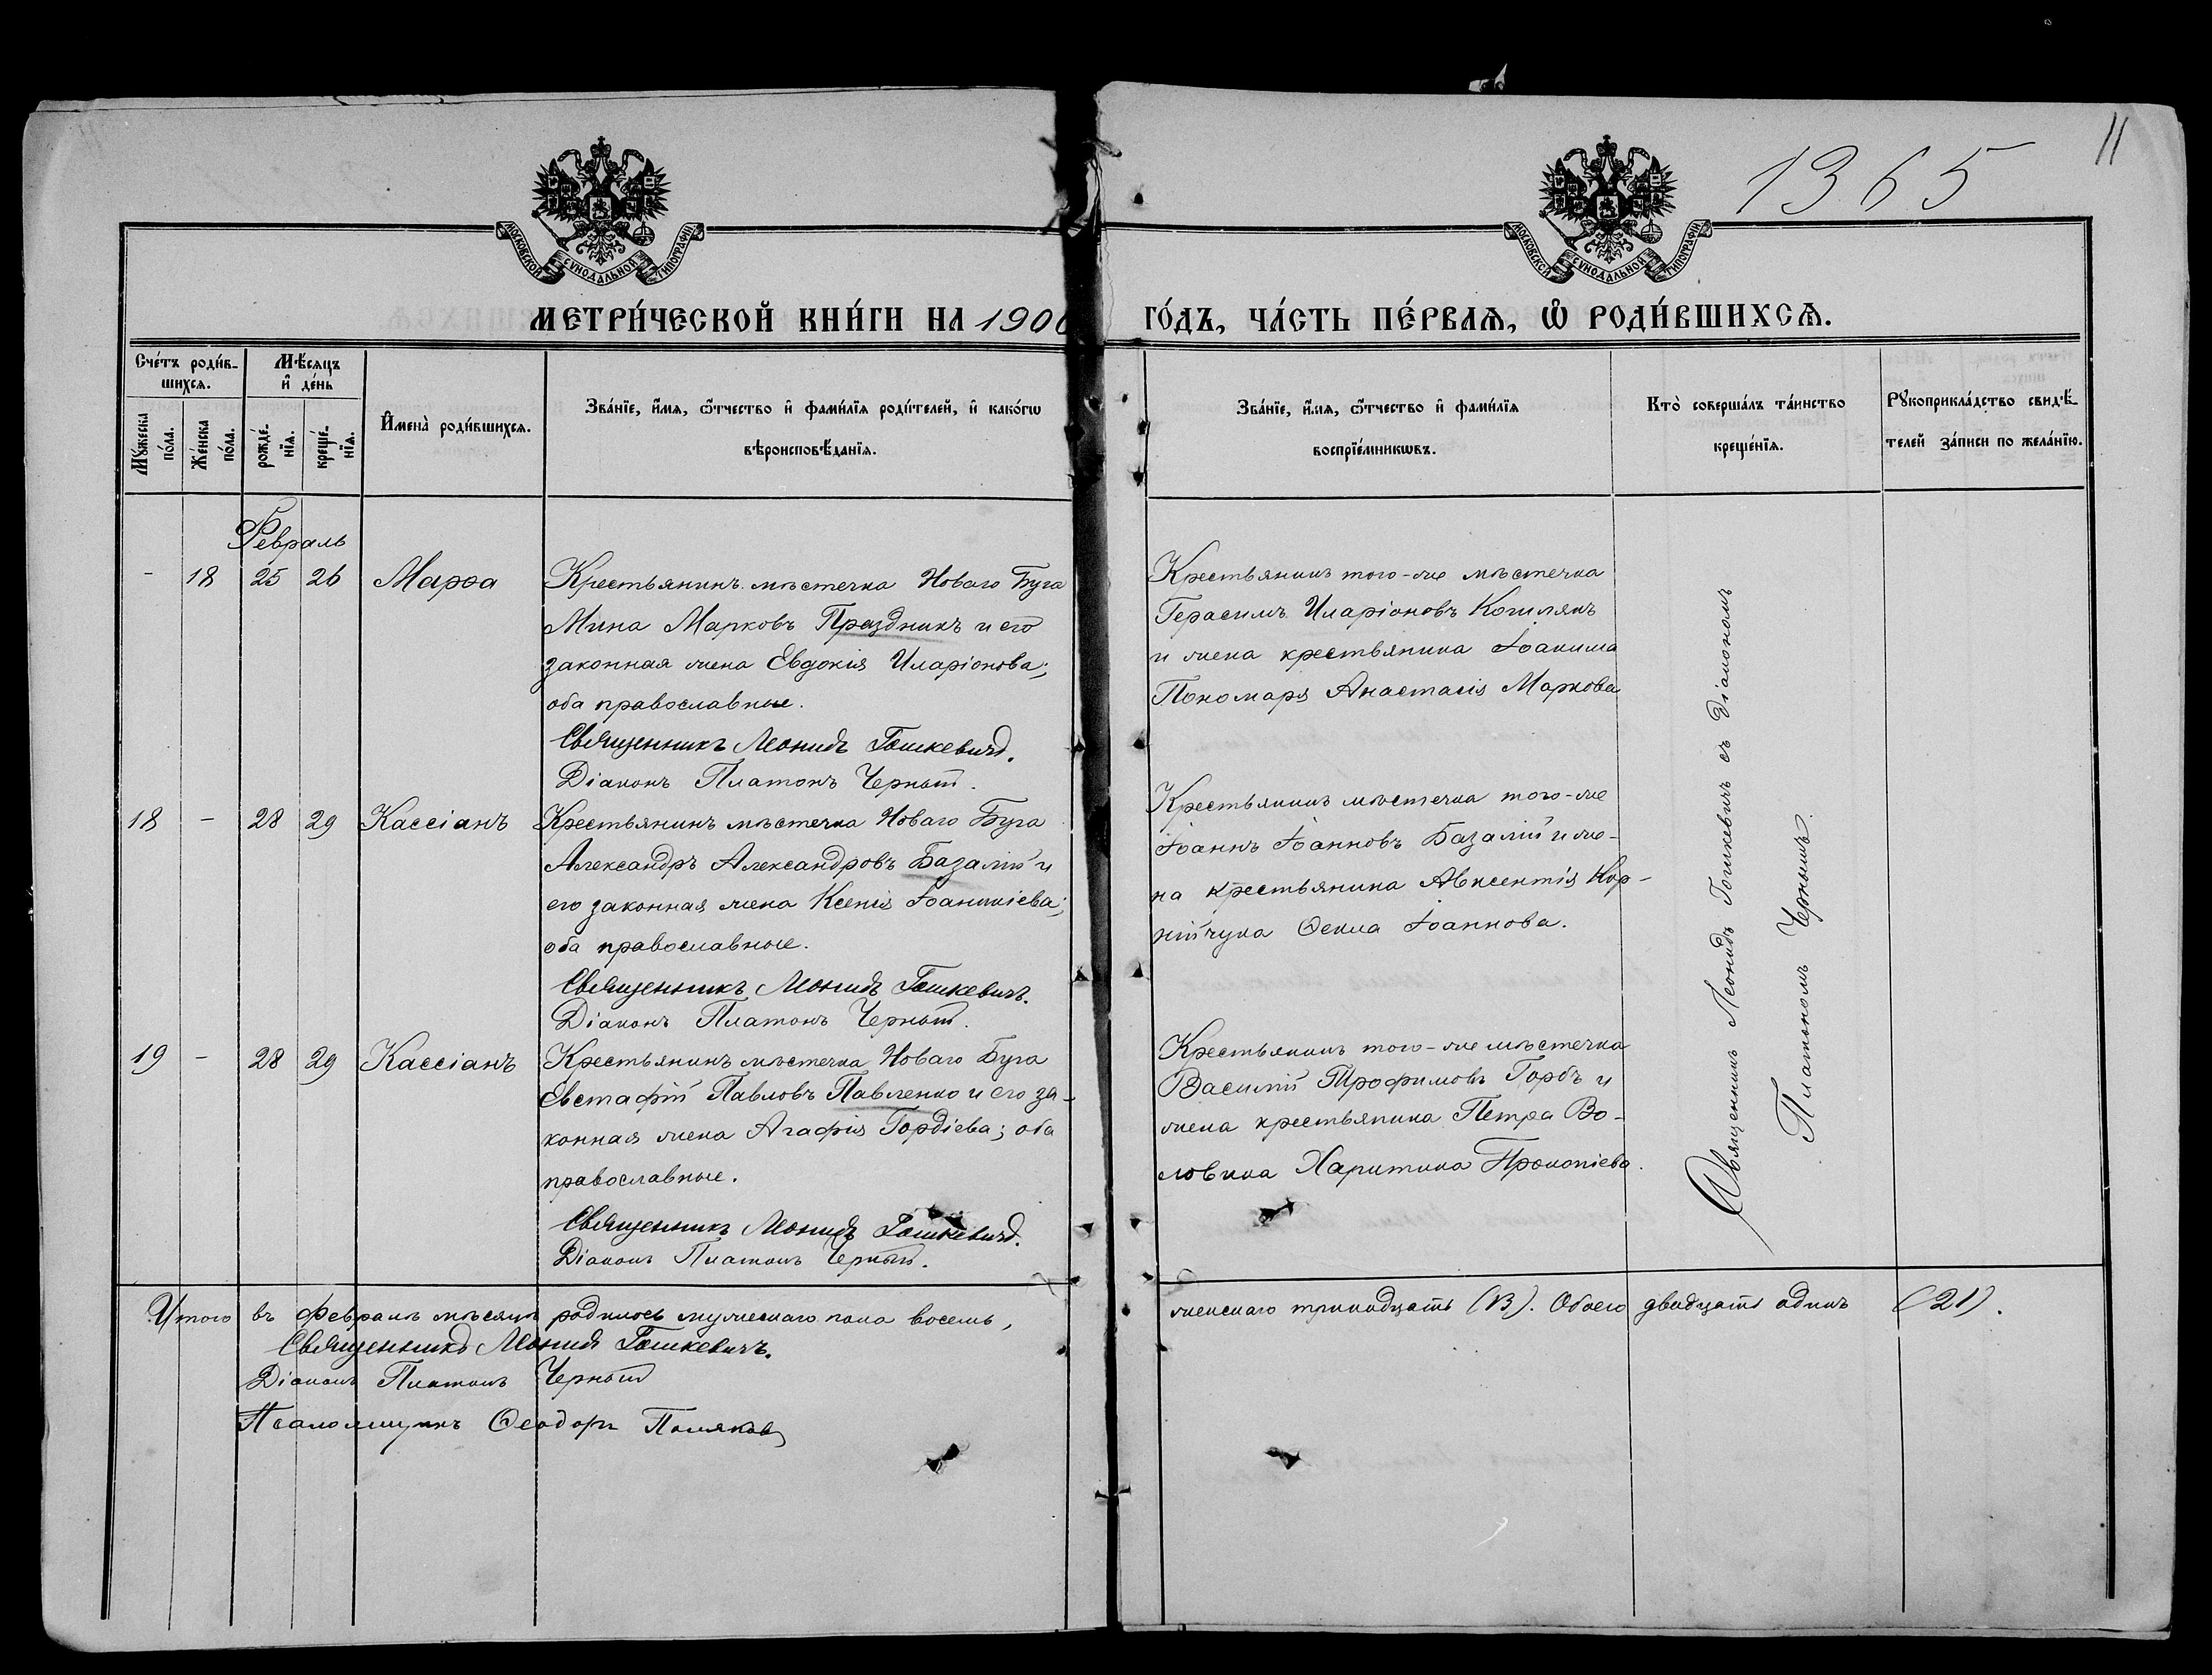 1365
11
МОСКОВСКОЙ СѴНОДАЛЬНОЙ ТИПОГРАФІИ
МОСКОВСКОЙ СѴНОДАЛЬНОЙ ТИПОГРАФІИ
МЕТРИ́ЧЕСКОЙ КНИ́ГИ НА 1900 ГО́ДЪ, ЧА́СТЬ ПЕ́РВАѦ, Ѡ҆ РОДИ́ВШИХСѦ.
Сче́тъ роди́в-
шихсѧ.
Мѣ́сѧцъ
и҆ де́нь
Мꙋ́жеска
по́ла.
Же́нска
по́ла.
рожде́-
нїѧ.
креще́-
нїѧ.
И҆мена̀ роди́вшихсѧ.
Зва́нїе, и҆́мѧ, ѻ҆́тчество и҆ фами́лїѧ роди́телей, и҆ како́гѡ
вѣроисповѣ́данїѧ.
Зва́нїе, и҆́мѧ, ѻ҆́тчество и҆ фами́лїѧ
воспрїе́мникѡвъ.
Кто̀ соверша́лъ та́инство
креще́нїѧ.
Рꙋкоприкла́дство свидѣ́-
телей за́писи по жела́нїю.
Февраль
- 18 25 26 Марѳа
Крестьянинъ мѣстечка Новаго Буга
Мина Марковъ Праздникъ и его
законная жена Евдокія Иларіонова;
оба православные.
Священникъ Леонидъ Гошкевичъ.
Діаконъ Платонъ Черный.
Крестьянинъ того-же мѣстечка
Герасимъ Иларіоновъ Кошлякъ
и жена крестьянина Іоакима
Пономаря Анастасія Маркова
18 - 28 29 Кассіанъ
Крестьянинъ мѣстечка Новаго Буга
Александръ Александровъ Базалій и
его законная жена Ксенія Іоанникіева;
оба православные.
Священникъ Леонидъ Гошкевичъ.
Діаконъ Платонъ Черный.
Крестьянинъ мѣстечка того-же
Іоаннъ Іоанновъ Базалій и же-
на крестьянина Авксентія Кор-
нійчука Ѳекла Іоаннова.
19 - 28 29 Кассіанъ
Крестьянинъ мѣстечка Новаго Буга
Евстафій Павловъ Павленко и его за-
конная жена Агафія Гордіева; оба
православные.
Священникъ Леонидъ Гошкевичъ.
Діаконъ Платонъ Черный.
Крестьянинъ того-же мѣстечка
Василій Трофимовъ Горбъ и
жена крестьянина Петра Во-
ловика Харитина Прокопіева.
Священникъ Леонидъ Гошкевичъ съ Діакономъ
Платономъ Чернымъ.
Итого въ Февралѣ мѣсяцѣ родилось мужескаго пола восемь, женскаго тринадцать (13). Обоего двадцать одинъ (21).
Священникъ Леонидъ Гошкевичъ.
Діаконъ Платонъ Черный
Псаломщикъ Ѳеодоръ Поляковъ